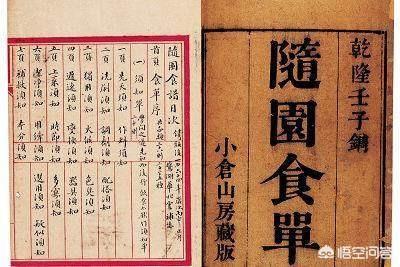 乾隆壬子鐫
隨園食單
小倉山房藏版
隨園食譜目次
首頁 食單序
(一) 須知單
一頁 先天須知 作料須知
二頁 洗刷須知 調劑須知 配搭須知
三頁 獨用須知 火候須知 色臭須知
四頁 遲速須知 變換須知 器具須知
五頁 上菜須知 時節須知 多寡須知
六頁 潔淨須知 用縴須知 選用須知 疑似須知
七頁 補救須知 本分須知
悟空问答